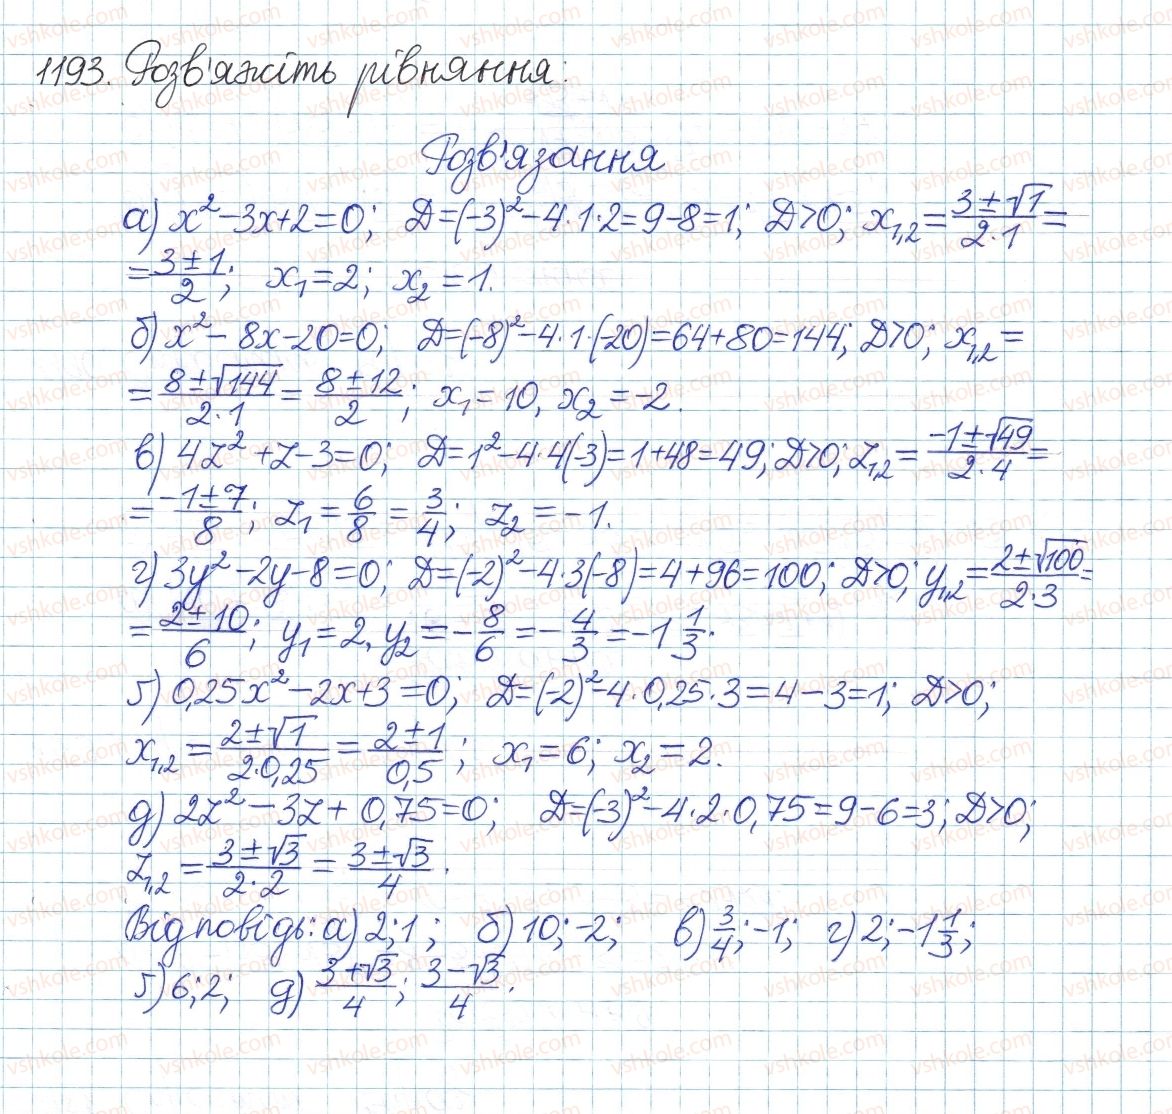 1193. Розв'яжіть рівняння:
Розв'язання
а) x² - 3x + 2 = 0; D = (-3)² - 4·1·2 = 9 - 8 = 1; D > 0; x₁,₂ = (3 ± √1)/(2·1) =
= (3 ± 1)/2; x₁ = 2; x₂ = 1.
б) x² - 8x - 20 = 0; D = (-8)² - 4·1·(-20) = 64 + 80 = 144; D > 0; x₁,₂ =
= (8 ± √144)/(2·1) = (8 ± 12)/2; x₁ = 10, x₂ = -2.
в) 4z² + z - 3 = 0; D = 1² - 4·4(-3) = 1 + 48 = 49; D > 0; z₁,₂ = (-1 ± √49)/(2·4) =
= (-1 ± 7)/8; z₁ = 6/8 = 3/4; z₂ = -1.
г) 3y² - 2y - 8 = 0; D = (-2)² - 4·3(-8) = 4 + 96 = 100; D > 0; y₁,₂ = (2 ± √100)/(2·3) =
= (2 ± 10)/6; y₁ = 2, y₂ = -8/6 = -4/3 = -1 1/3.
ґ) 0,25x² - 2x + 3 = 0; D = (-2)² - 4·0,25·3 = 4 - 3 = 1; D > 0;
x₁,₂ = (2 ± √1)/(2·0,25) = (2 ± 1)/0,5; x₁ = 6; x₂ = 2.
д) 2z² - 3z + 0,75 = 0; D = (-3)² - 4·2·0,75 = 9 - 6 = 3; D > 0;
z₁,₂ = (3 ± √3)/(2·2) = (3 ± √3)/4.
Відповідь: а) 2; 1; б) 10; -2; в) 3/4; -1; г) 2; -1 1/3;
ґ) 6; 2; д) (3 + √3)/4; (3 - √3)/4.
vshkole.com